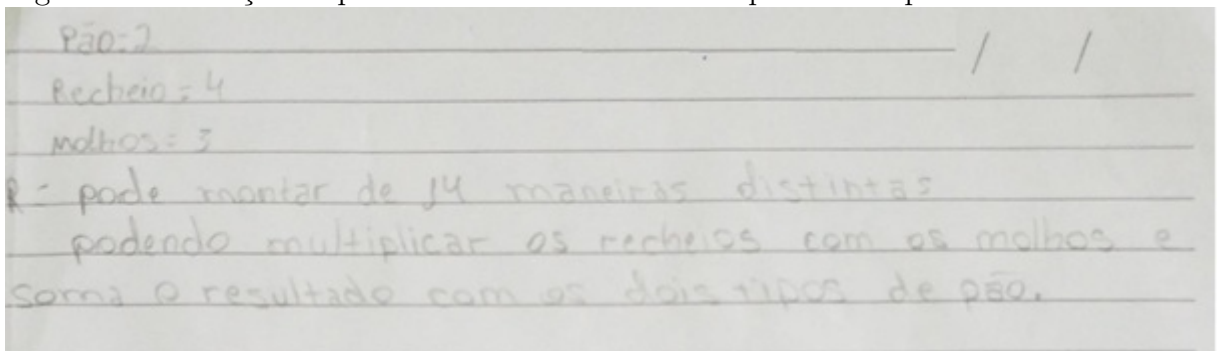 Pão: 2
/ /
Recheio = 4
Molhos = 3
R = pode montar de 14 maneiras distintas
podendo multiplicar os recheios com os molhos e
soma o resultado com os dois tipos de pão.